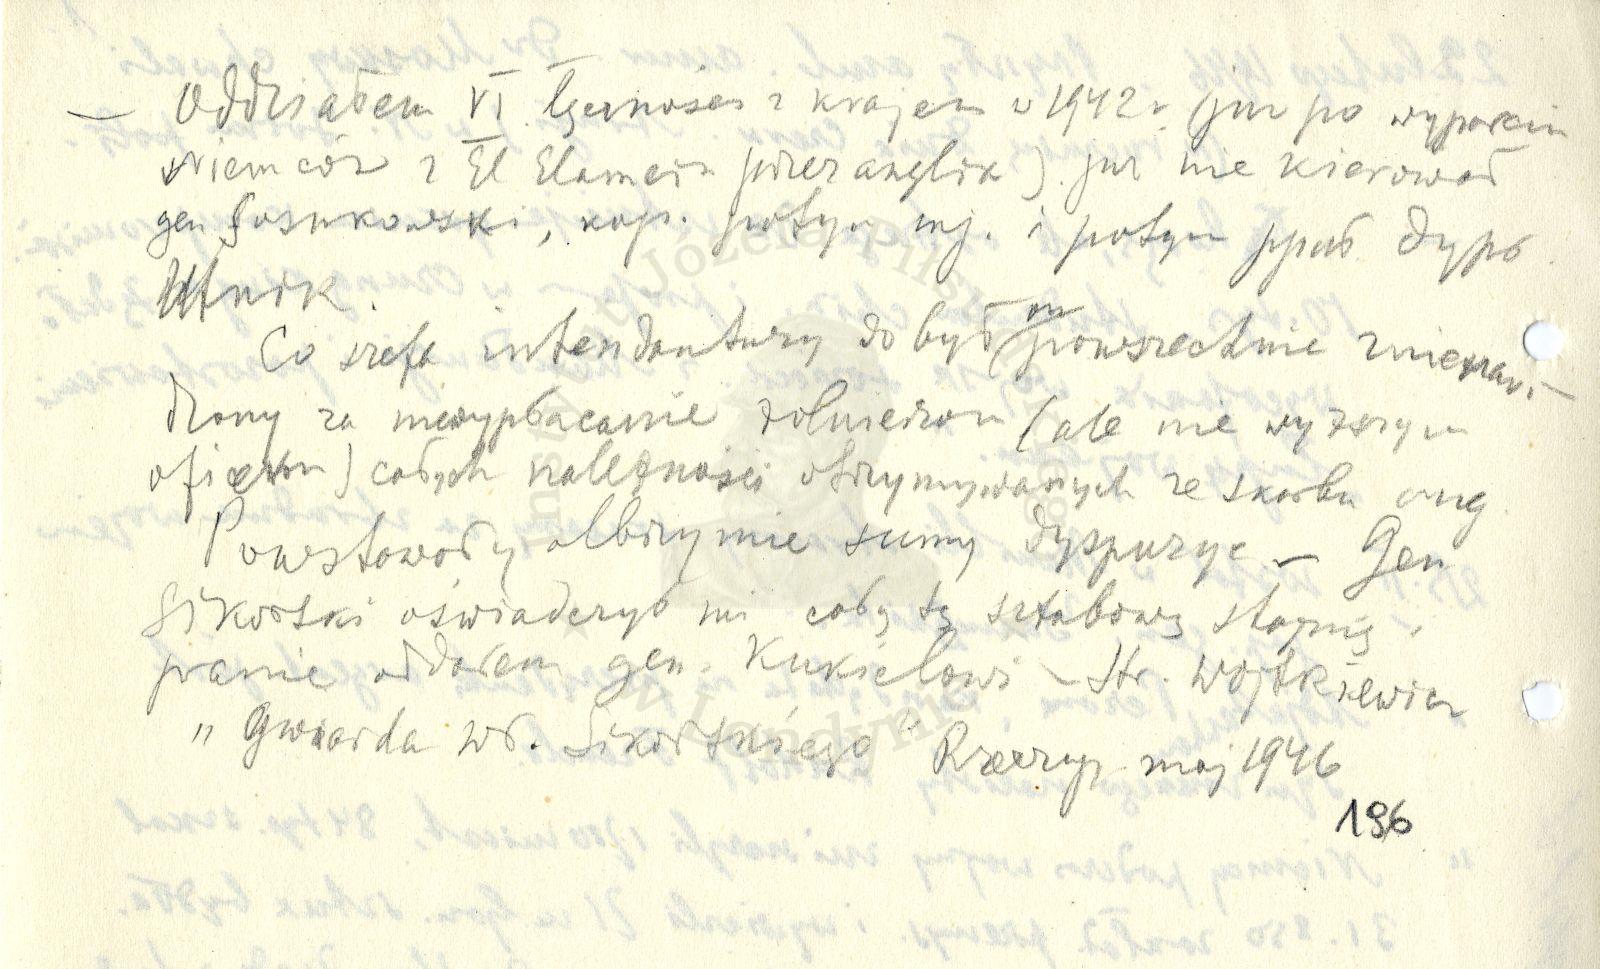 — Oddziałem VI łączności z krajem w 1942 r. (już po wyparciu
Niemców z El Elamein przez anglik) już nie kierował
gen Sosnkowski, kap. potym mj. i potym ppuł dypl.
Utnik.
Co szefa intendantury do był m powszechnie znienawi-
dzony za niewypłacanie żołnierzom (ale nie wyższym
oficerom) całych należności otrzymywanych ze skarbu ang.
Powstawały olbrzymie sumy dyspozyc — Gen
Sikorski oświadczył mi całą tę sztabową stajnię,
pranie oddałem gen. Kukielowi — Str. Wojtkiewicz
„Gwiazda Wł. Sikorskiego" Rzeczyp. maj 1946
196
Instytut Józefa Piłsudskiego
w Londynie